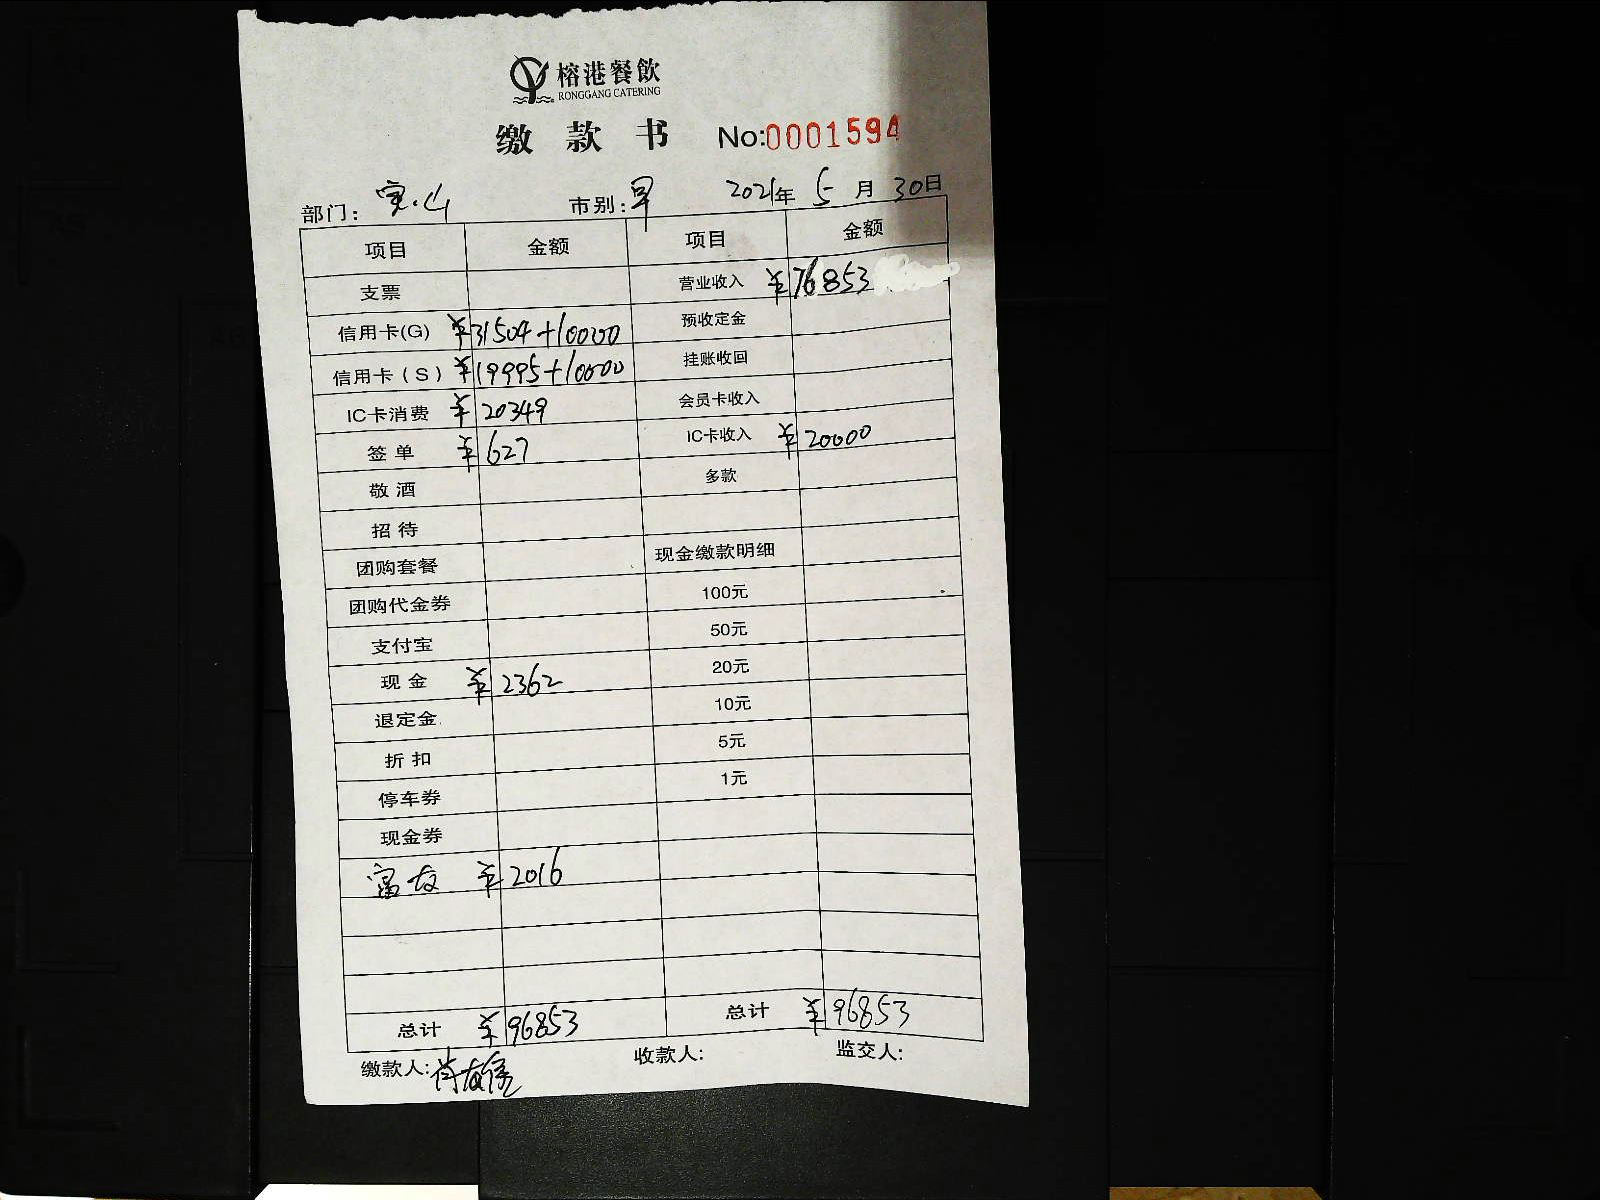 榕港餐飲
RONGGANG CATERING
缴款书 No:0001594
部门: 宝山 市别: 早 2021年 5月 30日
项目 金额 项目 金额
支票 营业收入 ¥76853
信用卡(G) ¥31504+10000 预收定金
信用卡(S) ¥19995+10000 挂账收回
IC卡消费 ¥20349 会员卡收入
签单 ¥627 IC卡收入 ¥20000
敬酒 多款
招待
团购套餐 现金缴款明细
团购代金券 100元
支付宝 50元
现金 ¥2362 20元
退定金 10元
折扣 5元
停车券 1元
现金券
富友 ¥2016
总计 ¥96853 总计 ¥96853
缴款人: 收款人: 监交人: